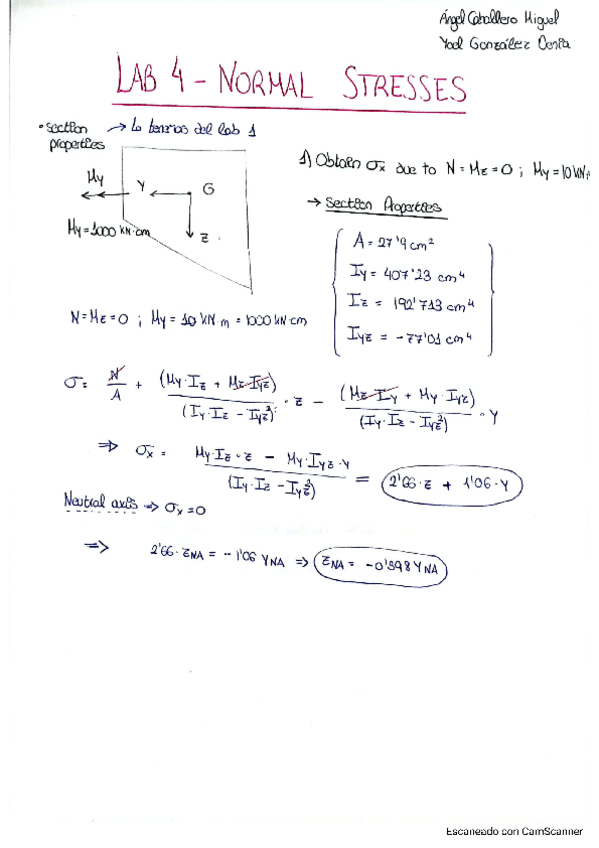 Ángel Caballero Miguel
Yoel González Denia
LAB 4 - NORMAL STRESSES
• Section properties → Lo tenemos del lab 1
My
Y
G
My = 1000 kN·cm
z
1) Obtain σx due to N = Mz = 0 ; My = 10 kN
→ Section Properties
A = 27'9 cm²
Iy = 407'23 cm⁴
Iz = 192'713 cm⁴
Iyz = -77'01 cm⁴
N = Mz = 0 ; My = 10 kN·m = 1000 kN·cm
σ = N/A + (My·Iz + Mz·Iyz)/(Iy·Iz - Iyz²) · z - (Mz·Iy + My·Iyz)/(Iy·Iz - Iyz²) · Y
⇒ σx = (My·Iz·z - My·Iyz·Y)/(Iy·Iz - Iyz²) = 2'66·z + 1'06·Y
Neutral axis ⇒ σx = 0
⇒ 2'66·zNA = -1'06 YNA ⇒ zNA = -0'398 YNA
Escaneado con CamScanner